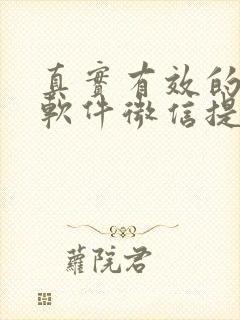 真實有效的
軟件微信提
蘿院君